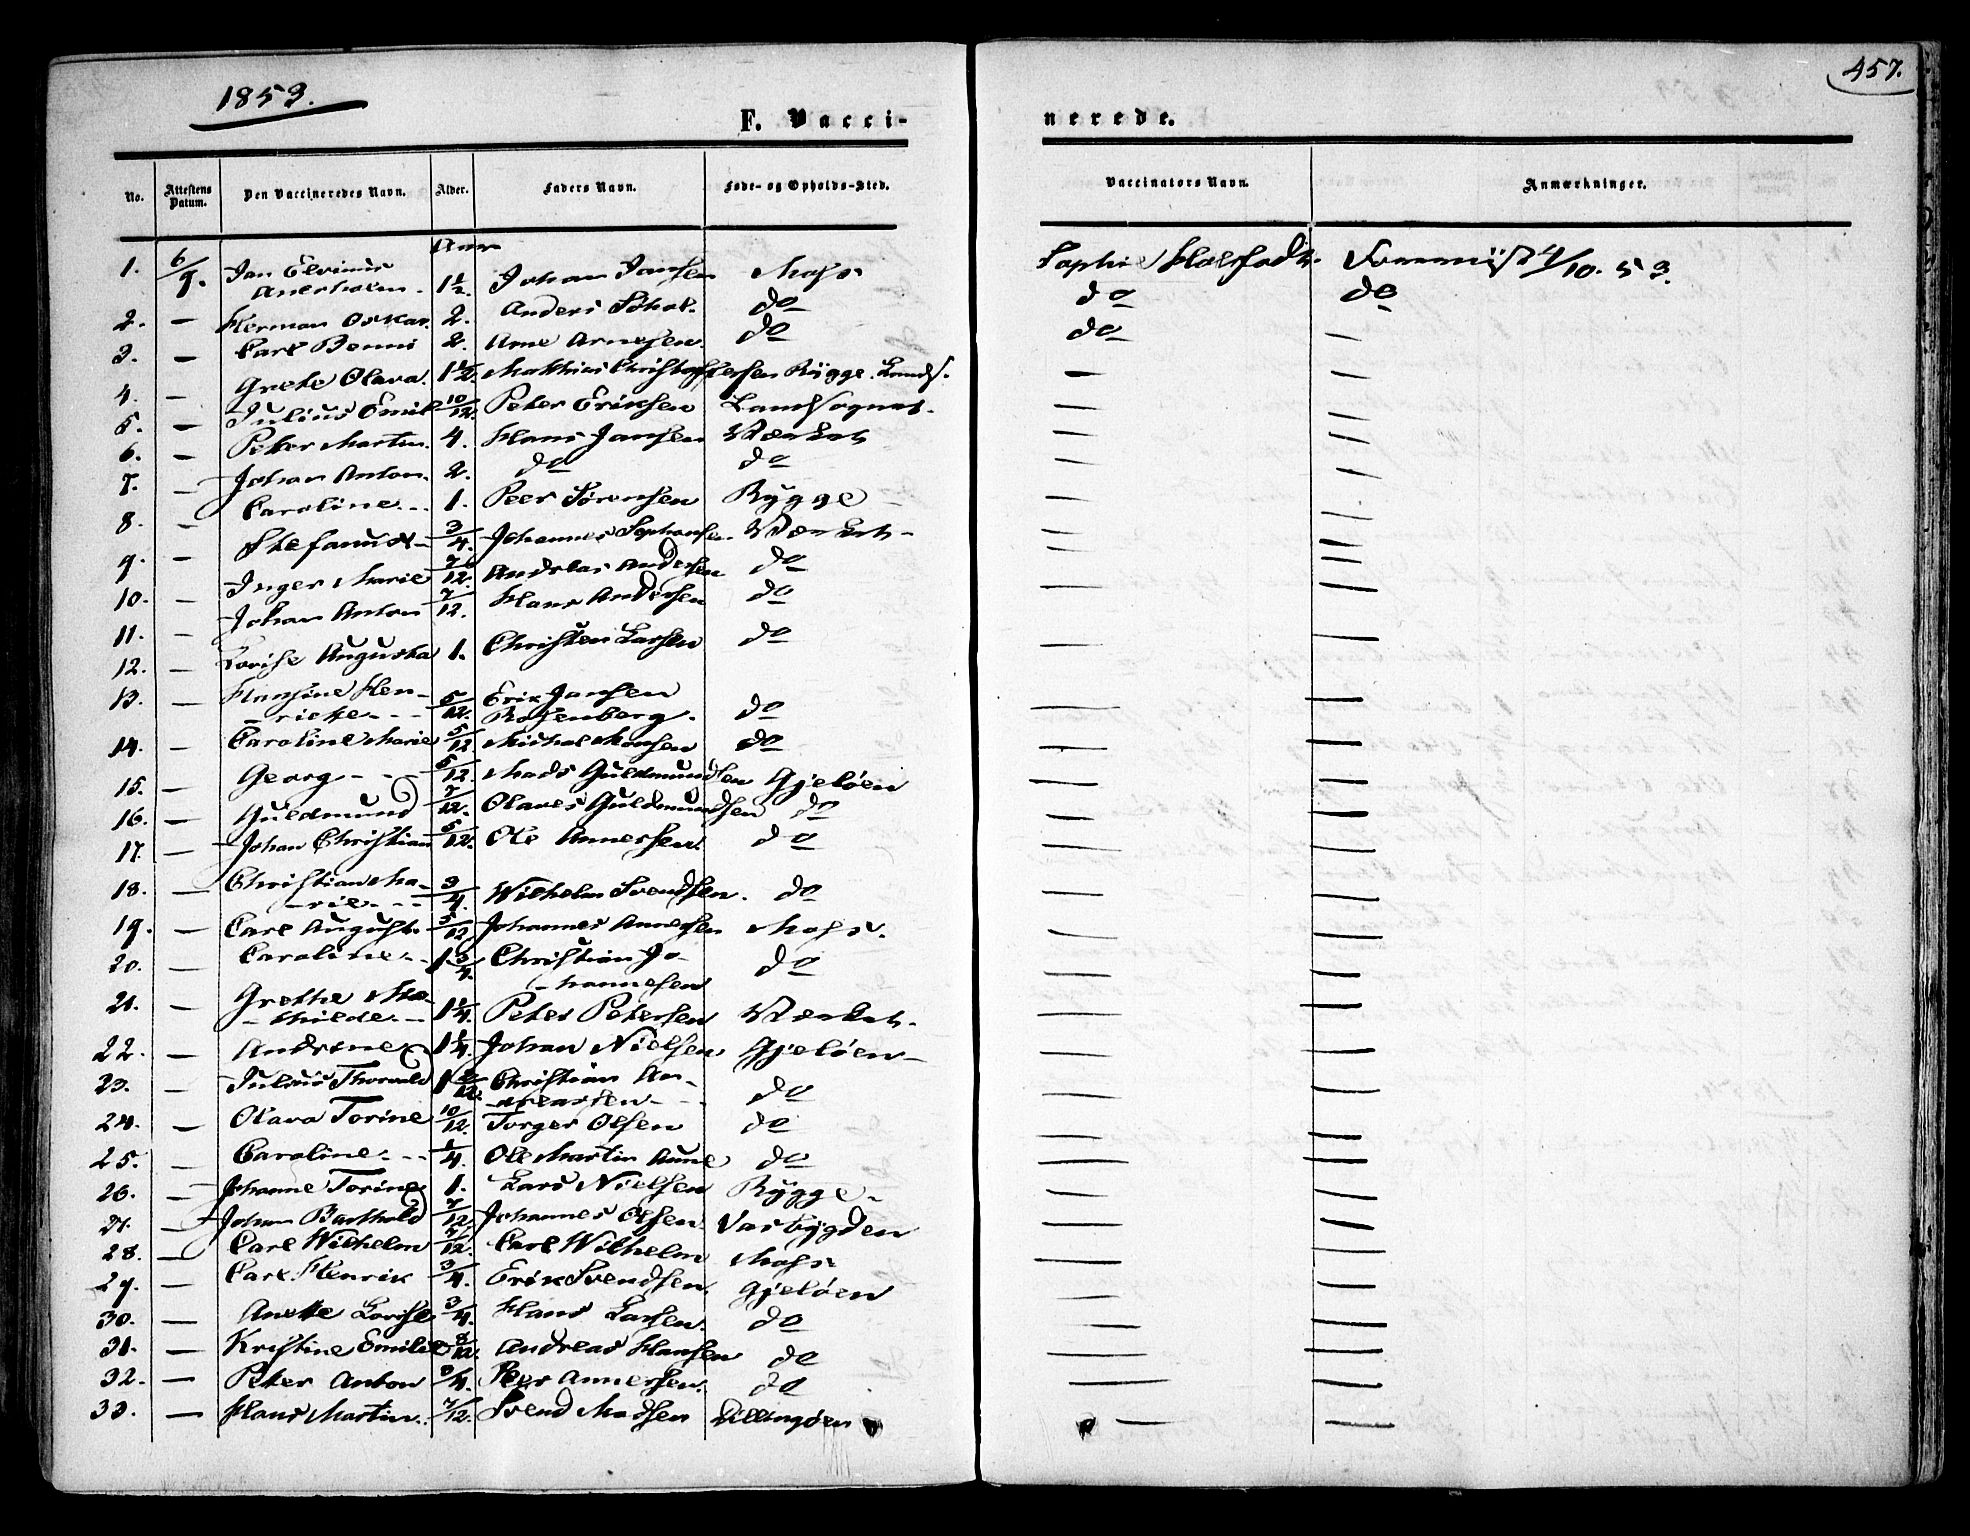 1853.
457.
F. Vacci-
nerede.
No. Attestens Datum. Den Vaccineredes Navn. Alder. Faders Navn. Føde- og Opholds-Sted. Vaccinators Navn. Anmærkninger.
1. 6/9. Jan 1½ Johan Jansen Moss Sophie 4/10. 53.
2. — Herman Oskar. 2. Anders do do do
3. — Carl Benni 2. Arne Arnesen. do do —
4. — Grete Olava. 1½ Matthias Christophersen Rygge. Lands. — —
5. — Julius Emil 10/12. Peter Eriksen Landsognet. — —
6. — Peter Martin. 4. Hans Jansen Værket — —
7. — Johan Anton. 2. do do — —
8. — Caroline 1. Peer Sørensen Rygge — —
9. — Stefanus 3/4. Johannes Værket — —
10. — Inger Marie 7/12. Andreas Andersen do — —
11. — Johan Anton 7/12. Hans Andersen do — —
12. — Lovise Augusta 1. Christen Larsen do — —
13. — Hansine Hen-
rikke 5/12. Erik Jansen
Rosenberg. do — —
14. — Caroline Marie 5/12 Michal Monsen do — —
15. — Georg 5/12 Mads Guldmundsen Gjeløen — —
16. — Guldmund 7/12. Olaves Guldmundsen do — —
17. — Johan Christian 5/12. Ole Annersen. do — —
18. — Christian Ma-
rie 3/4. Wilhelm Svendsen. do — —
19. — Carl August. 5/12 Johannes Annersen Moss. — —
20. — Caroline 1 3/4. Christian Jo-
hannesen do — —
21. — Grethe Ma-
thilde 1¼. Peter Petersen Værket. — —
22. — Andrine 1¼. Johan Nielsen Gjeløen — —
23. — Julius Thorvald Christian An-
dreassen do — —
24. — Olava Torine 10/12 Torger Olsen do — —
25. — Caroline 1/4. Ole Martin do — —
26. — Johanne Torine 1. Lars Nielsen Rygge — —
27. — Johan Barthold 7/12 Johannes Olsen Vasbygden — —
28. — Carl Wilhelm 7/12. Carl Wilhelm Moss — —
29. — Carl Henrik 3/4. Erik Svendsen. Gjeløen — —
30. — Anette Lovise 3/4 Hans Larsen. do — —
31. — Kristine Emilie 8/12. Andreas Hansen do — —
32. — Peter Anton 3/4. Peer Annersen. do — —
33. — Hans Martin. 7/12. Svend Madsen Dillingøen — —